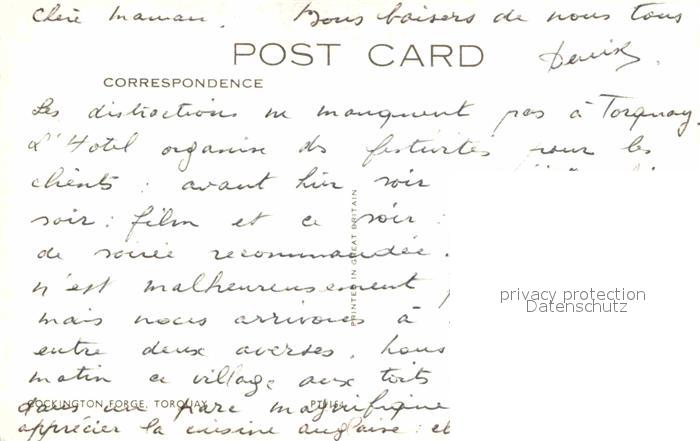 Chère Maman. Bons baisers de nous tous
POST CARD
Denise.
CORRESPONDENCE
Les distractions ne manquent pas à Torquay.
L'Hotel organise des festivités pour les
clients : avant hier soir
soir : film et ce soir :
de soirée recommandée.
n'est malheureusement
mais nous arrivons à
entre deux averses. Nous
matin ce village aux toits
COCKINGTON FORGE, TORQUAY.
dans un parc magnifique
apprécier la cuisine anglaise : et
PRINTED IN GREAT BRITAIN
privacy protection
Datenschutz